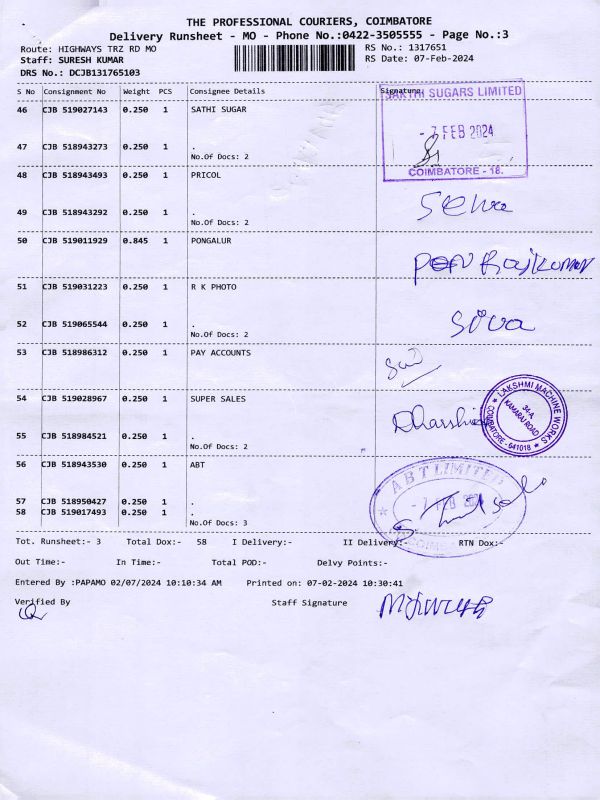 THE PROFESSIONAL COURIERS, COIMBATORE
Delivery Runsheet - MO - Phone No.:0422-3505555 - Page No.:3
Route: HIGHWAYS TRZ RD MO RS No.: 1317651
Staff: SURESH KUMAR RS Date: 07-Feb-2024
DRS No.: DCJB131765103
S No Consignment No Weight PCS Consignee Details Signature
SAKTHI SUGARS LIMITED
46 CJB 519027143 0.250 1 SATHI SUGAR
- 7 FEB 2024
47 CJB 518943273 0.250 1 .
No.Of Docs: 2
COIMBATORE - 18.
48 CJB 518943493 0.250 1 PRICOL
Selva
49 CJB 518943292 0.250 1 .
No.Of Docs: 2
50 CJB 519011929 0.845 1 PONGALUR
Rajkumar
51 CJB 519031223 0.250 1 R K PHOTO
Siva
52 CJB 519065544 0.250 1 .
No.Of Docs: 2
53 CJB 518986312 0.250 1 PAY ACCOUNTS
54 CJB 519028967 0.250 1 SUPER SALES
Dharshini
LAKSHMI MACHINE WORKS
34-A,
KAMARAJ ROAD
COIMBATORE - 641018
55 CJB 518984521 0.250 1 .
No.Of Docs: 2
56 CJB 518943530 0.250 1 ABT
ABT LIMITED
57 CJB 518950427 0.250 1 .
- 7 FEB 202
58 CJB 519017493 0.250 1 .
No.Of Docs: 3
Tot. Runsheet:- 3 Total Dox:- 58 I Delivery:- II Delivery:- RTN Dox:-
Out Time:- In Time:- Total POD:- Delvy Points:-
Entered By :PAPAMO 02/07/2024 10:10:34 AM Printed on: 07-02-2024 10:30:41
Verified By Staff Signature